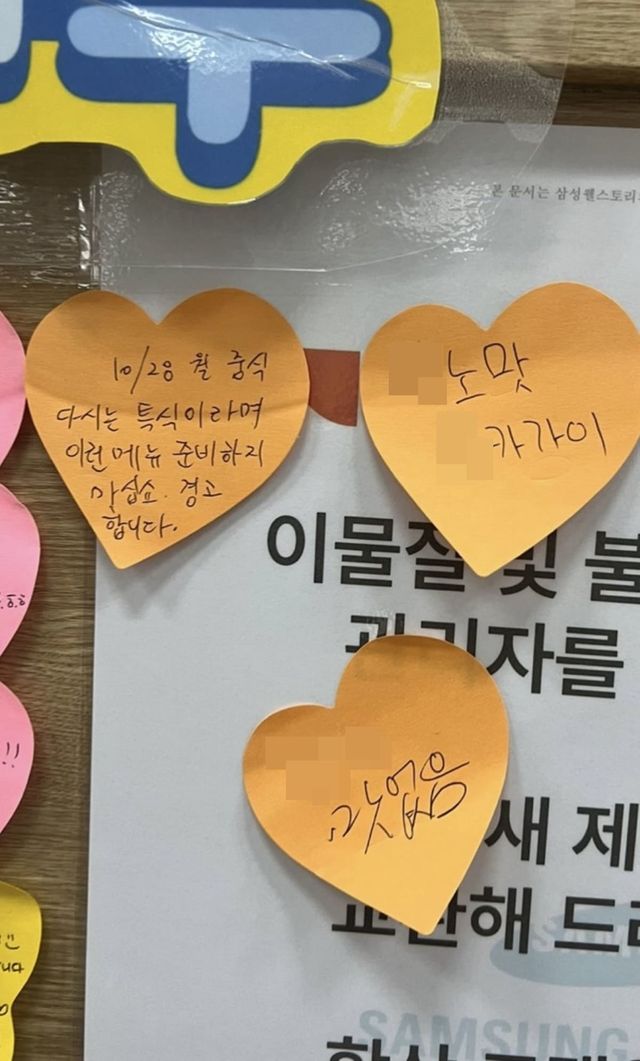 본 문서는 삼성웰스토리
10/28 월 중식
다시는 특식이라며
이런 메뉴 준비하지
마십쇼. 경고
합니다.
노맛
카가이
이물질 및 불
관리자를
맛없음
새 제
교환해 드리
SAMSUNG
!!
니다